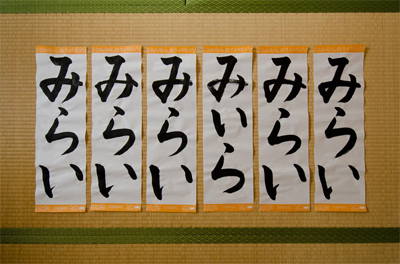 みらい
みらい
みらい
みいら
みらい
みらい